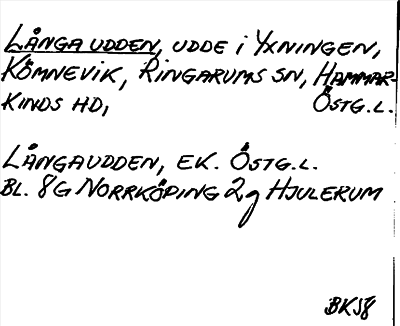 LÅNGA UDDEN, UDDE i YXNINGEN,
KÖMNEVIK, RINGARUMS SN, HAMMAR-
KINDS HD, ÖSTG.L.
LÅNGAUDDEN, EK. ÖSTG.L.
BL. 8G NORRKÖPING 2g HJULERUM
BKS8